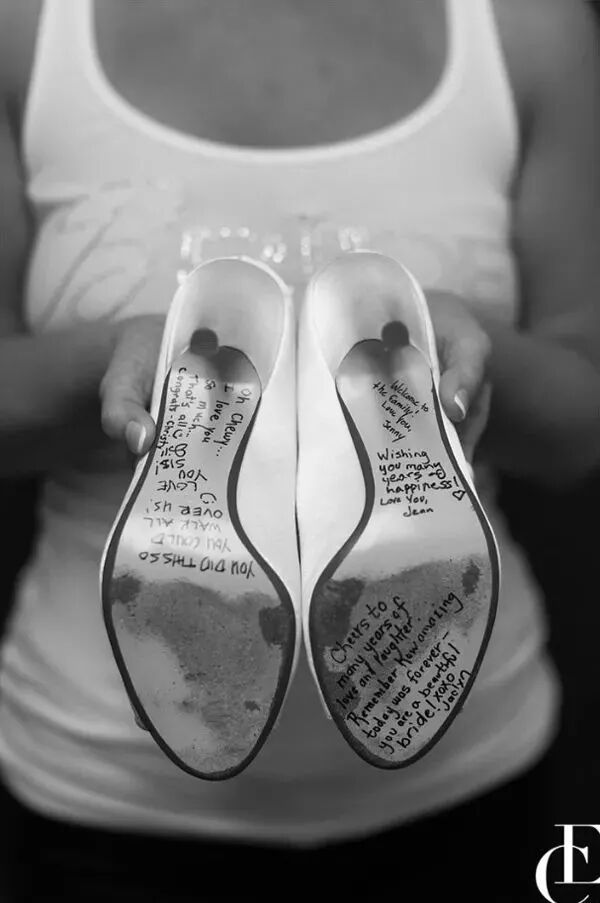 Oh Chewy...
I love you
So much..
That's all
congrats-
YOU DID THIS SO
YOU COULD
WALK ALL
OVER US!
LOVE
YOU
SIS
Welcome to
the family!
Love You,
Jenny
Wishing
you many
years of
happiness!
Love You,
Jean
Cheers to
many years of
love and laughter
Remember how amazing
today was forever-
you are a beautiful
bride! xoxo
Jaclyn